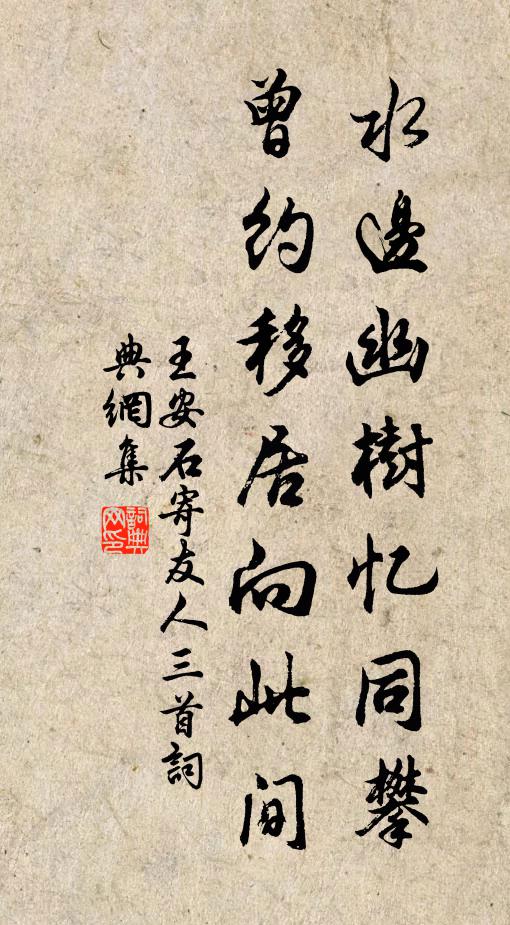 水邊幽樹忆同攀
曾约移居向此间
王安石寄友人三首詞
典網集
詞典网印